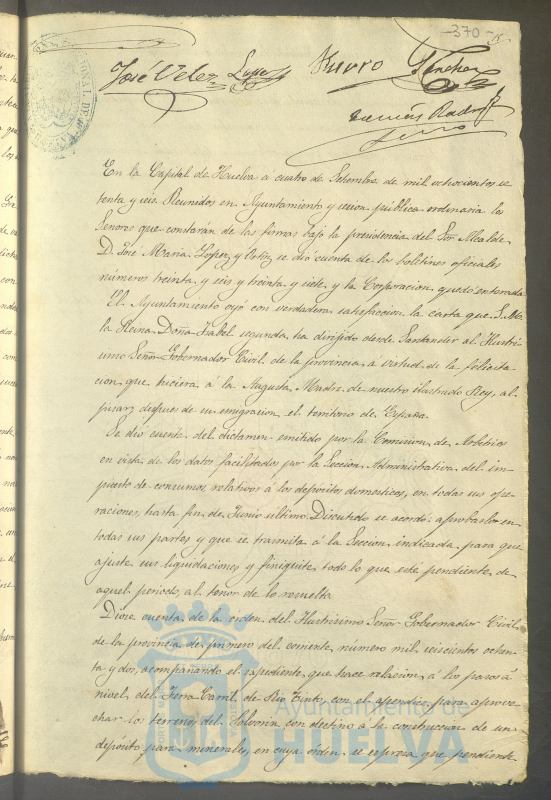 -370-
José Velez
Lopez
Fierro
Sánchez
Tomás
En la Capital de Huelva a cuatro de Setiembre de mil ochocientos se
tenta y seis. Reunidos en Ayuntamiento y sesion pública ordinaria los
Señores que constarán de las firmas bajo la presidencia del Sor Alcalde
D. José Maria Lopez y Ortiz se dió cuenta de los boletines oficiales
números treinta y seis y treinta y siete y la Corporacion quedó enterada.
El Ayuntamiento oyó con verdadera satisfaccion la carta que S. M.
la Reina Doña Isabel segunda ha dirijido desde Santander al Ilustri
simo Señor Gobernador Civil de la provincia á virtud de la felicita
cion que hiciera á la Augusta Madre de nuestro ilustrado Rey, al
pisar, despues de su emigracion el territorio de España.
Se dió cuenta del dictamen emitido por la Comision de Arbitrios
en vista de los datos facilitados por la Seccion Administrativa del im
puesto de consumos relativos á los depósitos domésticos, en todas sus ope
raciones, hasta fin de Junio último. Discutido se acordó aprobarlo en
todas sus partes y que se tramita á la Seccion indicada para que
ajuste sus liquidaciones y finiquite todo lo que esté pendiente de
aquel periodo, al tenor de lo resuelto
Diose cuenta de la orden del Ilustrisimo Señor Gobernador Civil
de la provincia de primero del corriente, número mil seiscientos ochen
ta y dos, acompañando el espediente que hace relacion á los pasos á
nivel del Ferro Carril de Rio Tinto, con el apéndice para aprove
char los terrenos del Polvorin con destino á la construccion de un
depósito para minerales, en cuya órden se espresa que pendiente
Ayuntamiento de
HUELVA